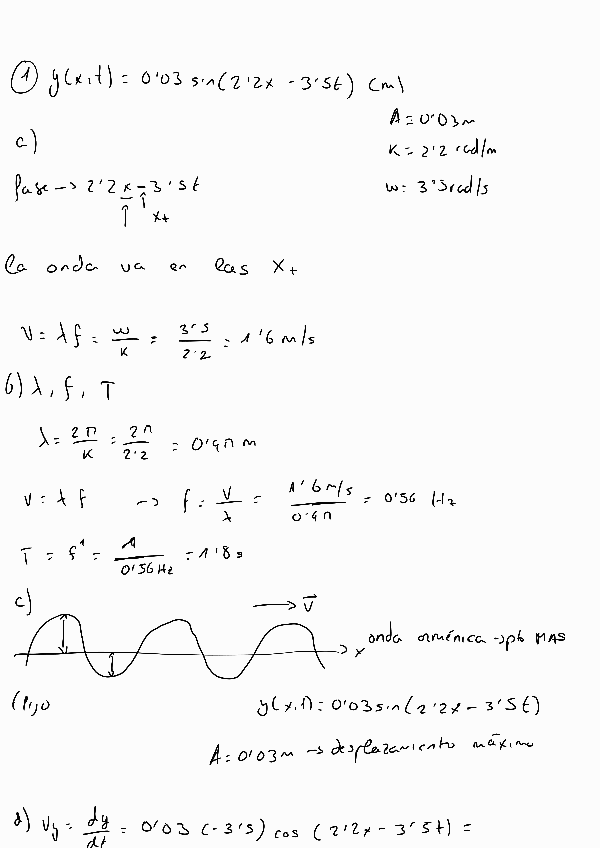 ① y(x,t) = 0'03 sin(2'2x - 3'5t) (m)
A = 0'03m
c)
K = 2'2 rad/m
fase -> 2'2x - 3'5t
w: 3'5rad/s
x+
la onda va en las X+
V = λ f = w/K = 3'5/2'2 = 1'6 m/s
b) λ, f, T
λ = 2π/K = 2π/2'2 = 0'9π m
V = λ f -> f = V/λ = 1'6 m/s/0'9π = 0'56 Hz
T = f¹ = 1/0'56Hz = 1'8s
c)
V
x onda armónica -> pto MAS
y(x,t) = 0'03sin(2'2x - 3'5t)
A = 0'03m -> desplazamiento máximo
d) Vy = dy/dt = 0'03 (-3's) cos (2'2x - 3'5t) =